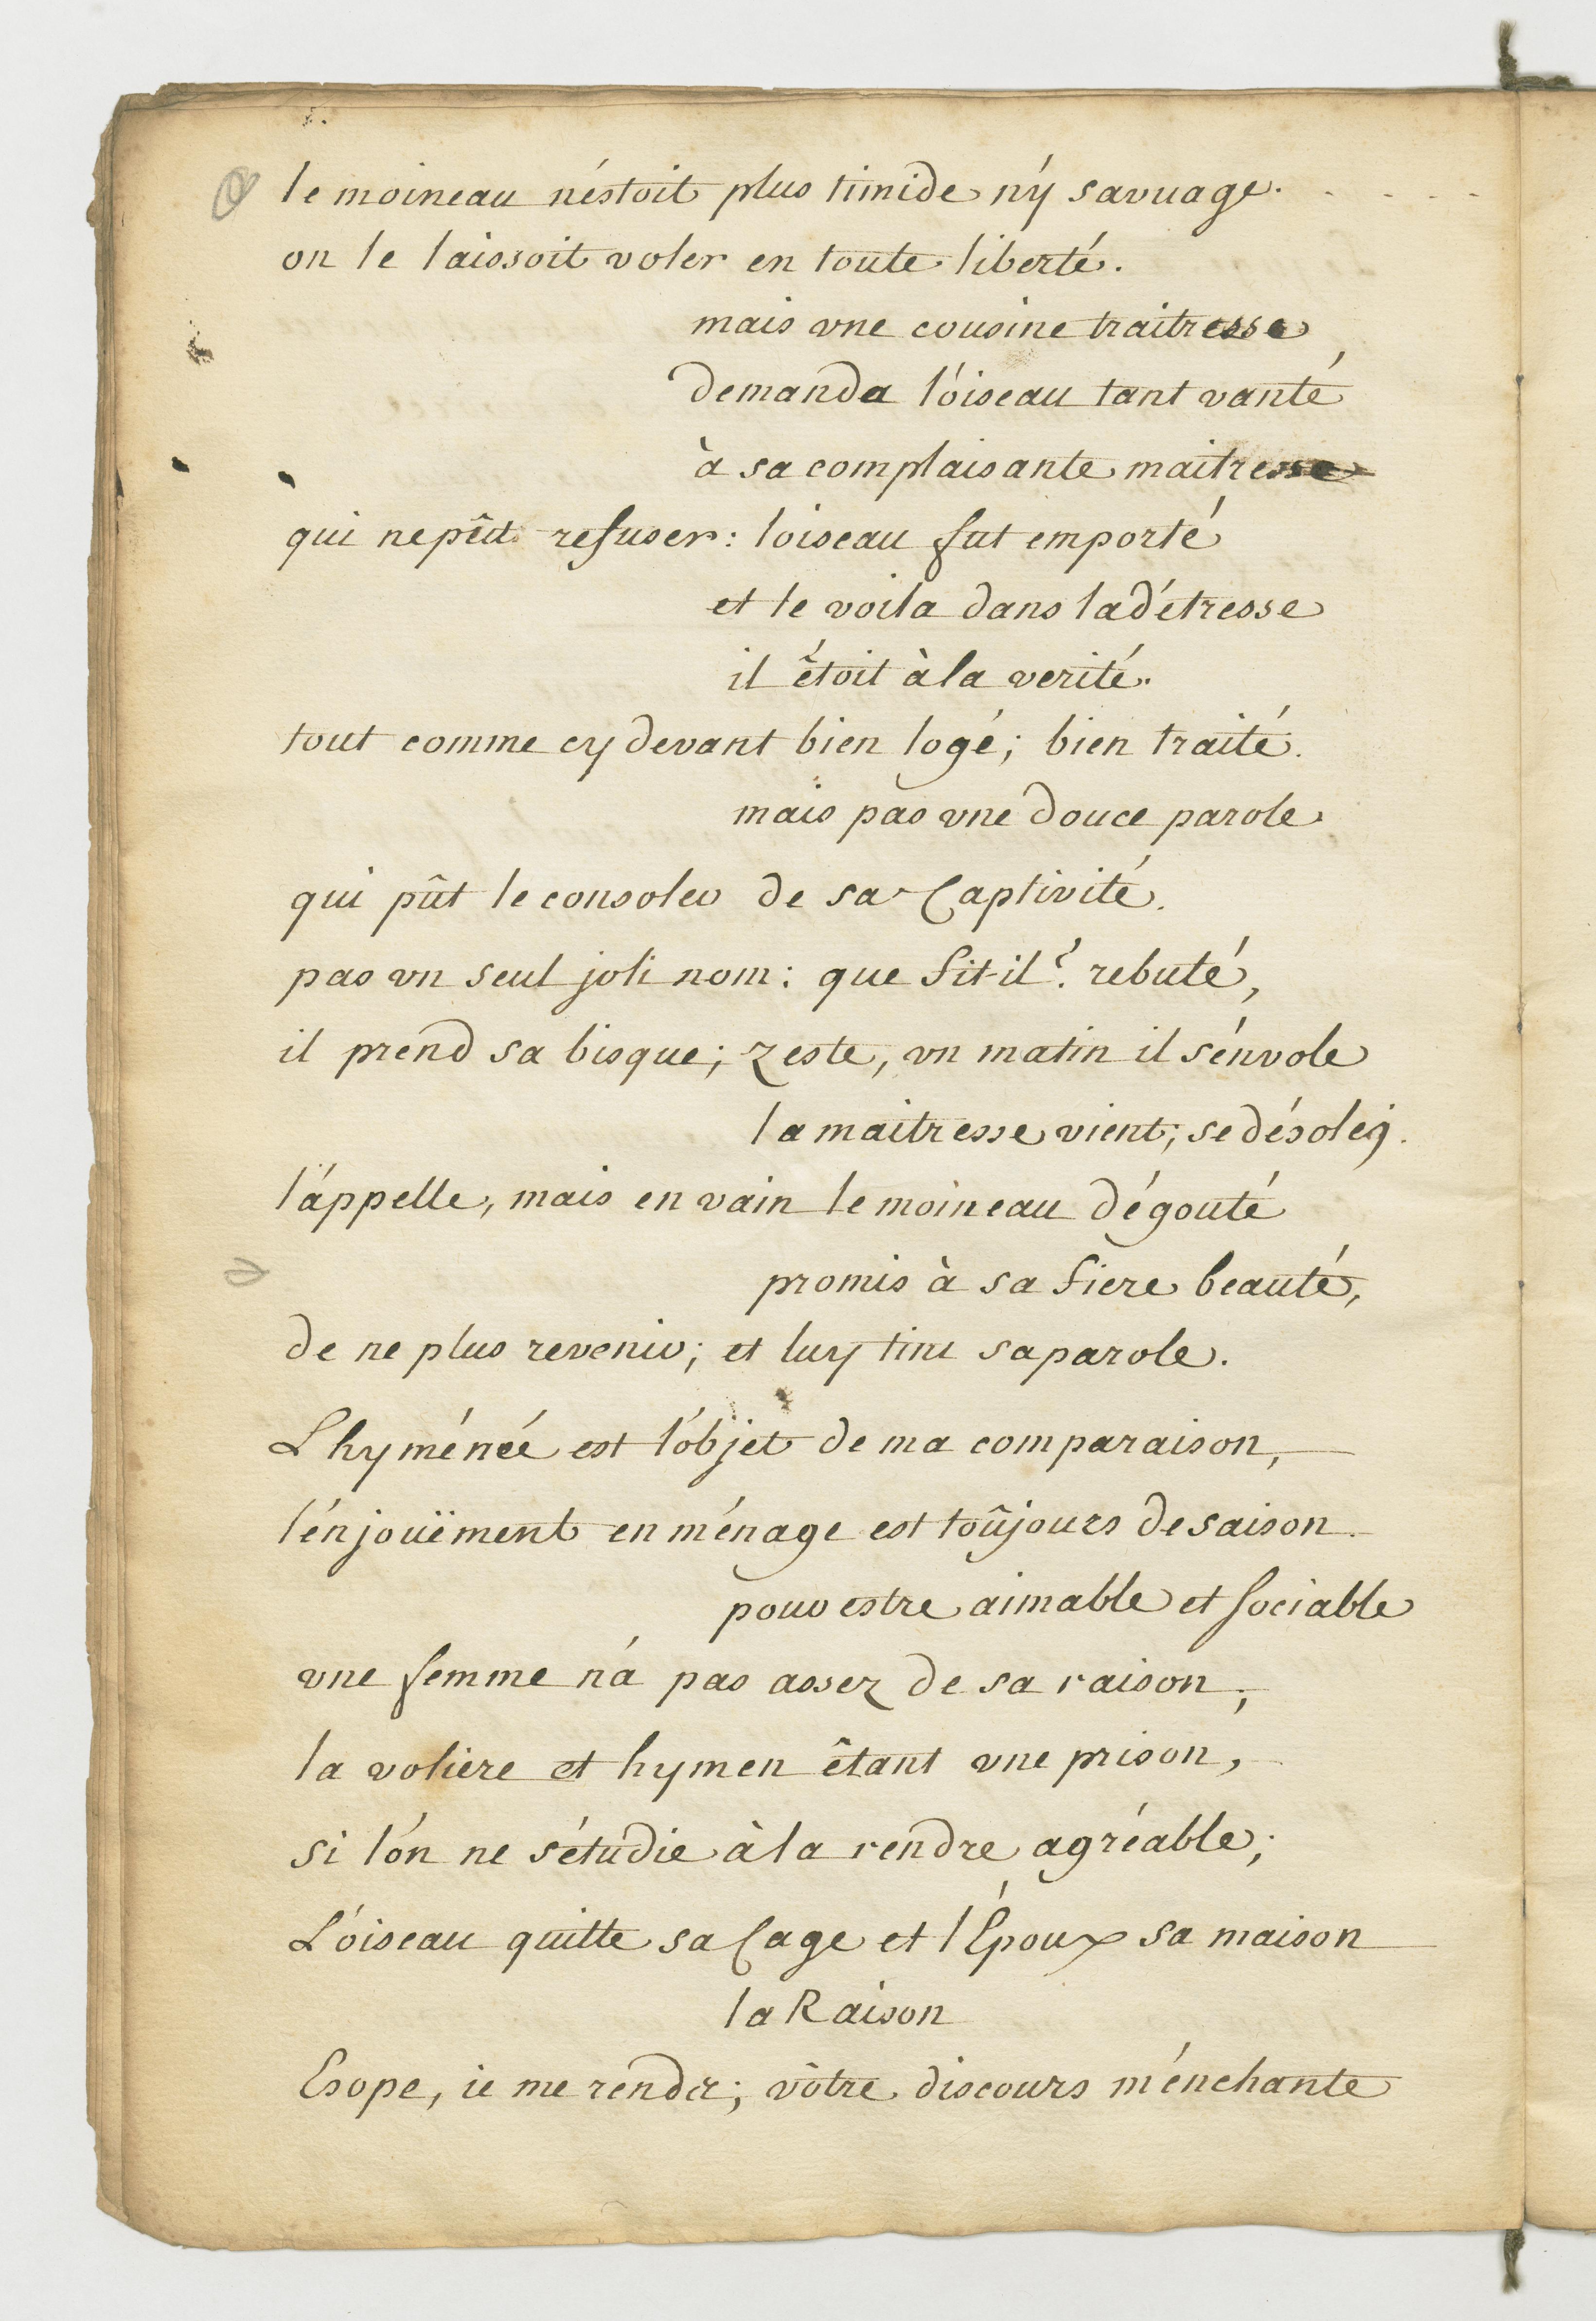 le moineau n'éstoit plus timide n'y savuage.
on le laissoit voler en toute liberté.
mais vne cousine traitresse
demanda l'oiseau tant vanté
à sa complaisante maitresse
qui ne pût refuser: loiseau fut emporté
et le voila dans la détresse
il étoit à la verité.
tout comme cy devant bien logé; bien traité.
mais pas vne douce parole
qui pût le consoler de sa Captivité.
pas vn seul joli nom: que fit-il? rebuté,
il prend sa bisque; zeste, vn matin il s'envole
la maitresse vient, se désole,
l'appelle, mais en vain le moineau dégouté
promis à sa fiere beauté,
de ne plus revenir; et luy tint sa parole.
Lhyménée est l'objet de ma comparaison,
l'enjouëment en ménage est toûjours de saison.
pour estre aimable et sociable
vne femme n'a pas assez de sa raison,
la voliere et hymen êtant vne prison,
si l'on ne s'étudie à la rendre agréable;
L'oiseau quitte sa Cage et l'Époux sa maison
la Raison
Esope, ie me rends; vôtre discours m'enchante